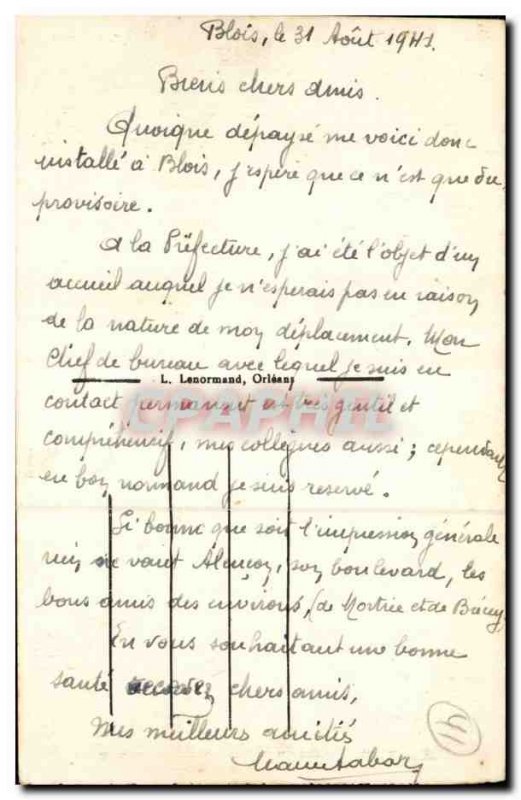 Blois, le 31 Août 1941.
Biens chers amis.
Quoique dépaysé me voici donc
installé à Blois, j'espère que ce n'est que du
provisoire.
A la Préfecture, j'ai été l'objet d'un
accueil auquel je n'esperais pas en raison
de la nature de mon déplacement. Mon
Chef de bureau avec lequel je suis en
L. Lenormand, Orléans
contact permanent est très gentil et
compréhensif, mes collègues aussi ; cependant
en bon normand je suis reservé.
Si bonne que soit l'impression générale
rien ne vaut Alençon, son boulevard, les
bons amis des environs, (de Mortrée et de
En vous souhaitant une bonne
santé chers amis,
Mes meilleurs amitiés
CPAPHIL